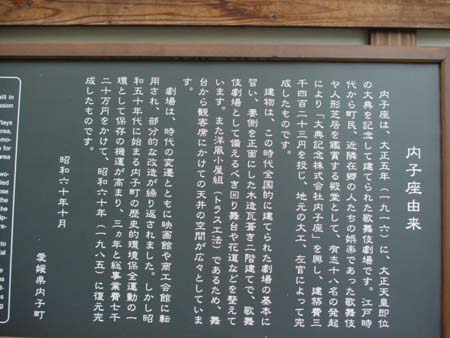 内子座由来
内子座は、大正五年(一九一六)に、大正天皇即位
の大典を記念して建てられた歌舞伎劇場です。江戸時
代から町民、近隣在郷の人たちの娯楽であった歌舞伎
や人形芝居を鑑賞する殿堂として、有志十八名の発起
により「大典記念株式会社内子座」を興し、建築費三
千四百二十三円を投じ、地元の大工、左官によって完
成したものです。
建物は、この時代全国的に建てられた劇場の基本に
習い、妻側を正面にした木造瓦葺き二階建てで、歌舞
伎劇場として備えるべき回り舞台や花道などを整えて
います。また洋風小屋組(トラス工法)であるため、舞
台から観客席にかけての天井の空間が広々としていま
す。
劇場は、時代の変遷とともに映画館や商工会館に転
用され、部分的な改造が繰り返されました。しかし昭
和五十年代に始まる内子町の歴史的環境保全運動の一
環として保存の機運が高まり、三カ年と総事業費七千
二十万円をかけて、昭和六十年(一九八五)に復元完
成したものです。
昭和六十年十月
愛媛県内子町